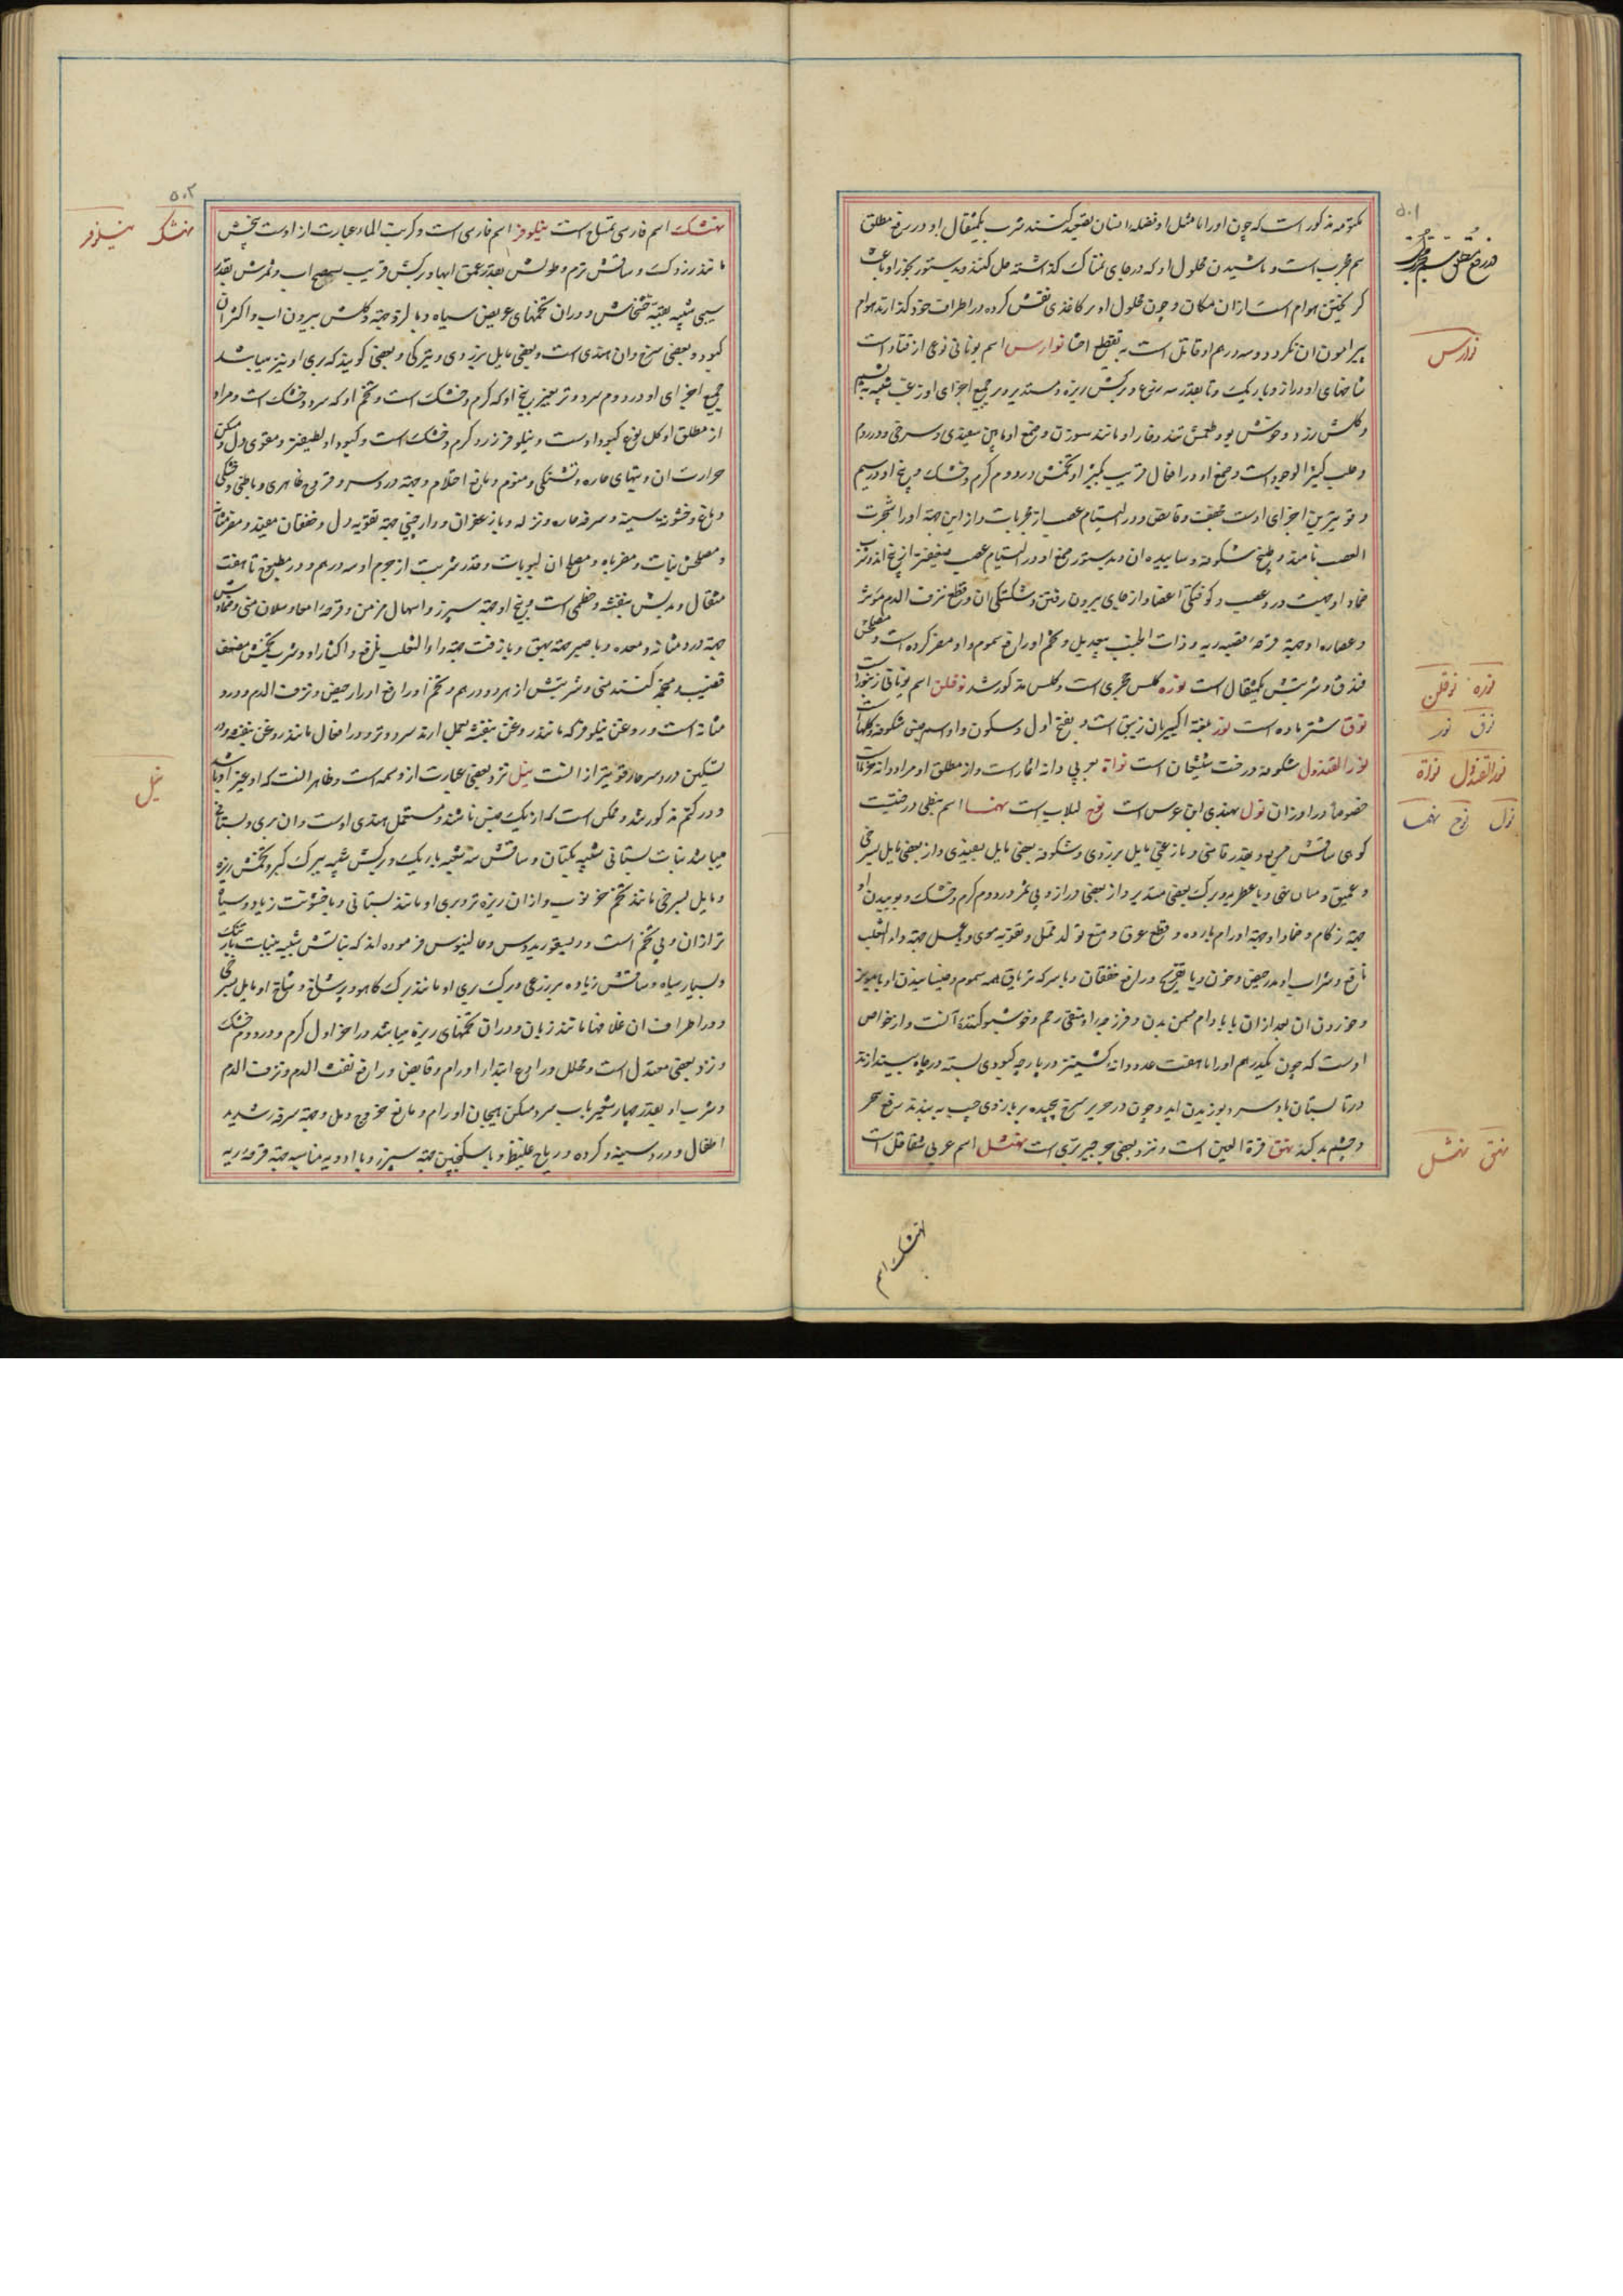 ۵۰۱
مکتومه مذکور است که چون او را با مثل او فضله انسان تقعید کنند شرب یکمثقال او در رفع مطلق
سم مجرب است و پاشیدن محلول او که در جای نمناک گذاشته حل کنند و بدستور بخور او باعث
گریختن هوام است از آن مکان و چون محلول او بر کاغذی نقش کرده در اطراف خود گذارند هوام
پیرامون آن نگردد و سه درهم او قاتل است به تقطیع احشا نوارس اسم یونانی نوعی از قتاد است
شاخهای او دراز و باریک و تا بقدر سه ذرع و برکش ریزه و مستدیر و بر جمیع اجزای او زغب شبیه به پشم
و گلش زرد و خوش بو و طعمش تند و خار او مانند سوزن و صمغ او مابین سفیدی و سرخی و در روم
و حلب کثیر الوجود است و صمغ او در افعال قریب بکثیرا و تخمش در دوم گرم و خشک و بیخ او در سیم
و قویترین اجزای اوست مجفف و قابض و در التیام عصب از مجربات و از این جهة او را شجرة
العصب نامند و طبیخ شکوفه و ساییده آن و بدستور صمغ او در التیام عصب ضعیفتر از بیخ اند و شرب
ضماد او جهت درد عصب و کوفتگی اعضا و از جای بیرون رفتن و شکستگی آن و قطع نزف الدم مؤثر
و عصاره او جهة قرحه قصبه ریه و ذات الجنب بیعدیل و تخم او رافع سموم و او مضر گرده است و مصلحش
فندق و شربتش یکمثقال است نوره کلس حجری است و کلس مذکور شد نوفلن اسم یونانی زنبور است
نوق شتر ماده است نور بلغة اکسیریان زیبق است و بفتح اول و سکون واو اسم جنس شکوفه و گلهاست
نور القندول شکوفه درخت شیشعان است نواة بعربی دانه اثمار است و از مطلق او مراد دانه خرماست
خصوصا در اوزان نول بهندی ابن عرس است نوح لبلاب است نهما اسم نبطی درختیست
کوهی ساقش مربع و بقدر قامتی و با زغبی مایل بزردی و شکوفه بعضی مایل بسفیدی و از بعضی مایل بسرخی
جهة زکام و ضماد او جهة اورام بارده و قطع عرق و منع تولد قمل و تقویه موی و بعسل جهة داء الثعلب
نافع و شراب او مدر حیض و خون و با تفریح و رافع خفقان و با سرکه تریاق همه سموم
و خوردن آن بعد از آن با بادام مسمن بدن و فرزجه او منقی رحم و خوشبو کننده آنست و از خواص
اوست که چون یکدرهم او را با هفت عدد دانه کشنیز در پارچه کبودی بسته در چاه بیندازند
در تابستان باد سرد بوزیدن آید و چون در حریر سرخ پیچیده بر بازوی چپ ببندند رفع سحر
و چشم بد کند نهق قرة العین است و نزد بعضی جرجیر بری است نهشل اسم عربی شقاقل است
نوارس
نوره نوفلن
نوق نور
نور القندول نواة
نول نوح نهما
نهق نهشل
نهشک اسم
۵۰۲
نهشک اسم فارسی تمساح است نیلوفر اسم فارسی است و کرنب الماء عبارت از اوست بیخش
مانند زردک و ساقش نرم و طولش بقدر عمق آبها و برکش قریب بسطح آب و ثمرش بقدر
سیبی شبیه بقبه خشخاش و در آن تخمهای عریض سیاه و با لزوجة و گلش بیرون آب و اکثر آن
کبود و بعضی سرخ و آن هندی است و بعضی مایل بزردی و تیرگی و بعضی گویند که بری او نیز میباشد
جمیع اجزای او در دوم سرد و تر بغیر بیخ او که گرم و خشک است و تخم او که سرد و خشک است و مراد
از مطلق او گل نوع کبود اوست و نیلوفر زرد گرم و خشک است و کبود او لطیفتر و مقوی دل و مسکن
حرارت آن و تبهای حاره و تشنگی و منوم و مانع احتلام و جهة درد سر و قروح ظاهری و باطنی و خشکی
دماغ و خشونة سینه و سرفه حاره و نزله و با زعفران و دارچینی جهة تقویه دل و خفقان مفید و مضر مثانه
و مصلحش نبات و مضر باه و مصلح آن لبوبات و قدر شربت از جرم او سه درهم و در مطبوخ تا هفت
مثقال و بدلش بنفشه و خطمی است و بیخ او جهة سپرز و اسهال مزمن و قرحه امعا و سیلان منی و ضمادش
جهة درد مثانه و معده و با صبر جهة بهق و با زفت جهة داء الثعلب نافع و اکثار او و شرب تخمش مضعف
قضیب و مجمد کننده منی و شربتش از هر دو درهم و تخم او رافع ادرار حیض و نزف الدم و درد
مثانه است و روغن نیلوفر که مانند روغن بنفشه بعمل آرند سرد و تر و در افعال مانند روغن بنفشه و در
تسکین درد سر حار قویتر از آنست نیل نزد بعضی عبارت از وسمه است و ظاهرا آنست که او غیر او باشد
و در کتم مذکور شد و ممکن است که از یک جنس باشند و مستعمل هندی اوست و آن بری و بستانی
میباشد نبات بستانی شبیه بکتان و ساقش سه شعبه باریک و برکش شبیه ببرک کبر و تخمش ریزه
و مایل بسرخی مانند تخم خرنوب و از آن ریزه تر و بری او مانند بستانی و با خشونت زیاد و سیاه
تر از آن و بی تخم است و دیسقوریدوس و جالینوس فرموده اند که نباتش شبیه بنبات بارتنک
و بسیار سیاه و ساقش زیاده بر ذرعی و برک بری او مانند برک کاهو و پر شاخ و شاخ او مایل بسرخی
و در اطراف آن غلافها مانند زبان و در آن تخمهای ریزه میباشد در آخر اول گرم و در دوم خشک
و نزد بعضی معتدل است و محلل و رادع ابتدا اورام و قابض و رافع نفث الدم و نزف الدم
و شرب او بقدر چهار شعیر بآب سرد مسکن هیجان اورام و مانع خروج دمل و جهة سرفه شدید
اطفال و درد سینه و گرده و ریاح غلیظ و با سکنجبین جهة سپرز و با ادویه مناسبه جهة قرحه ریه
نهشک نیلوفر
نیل